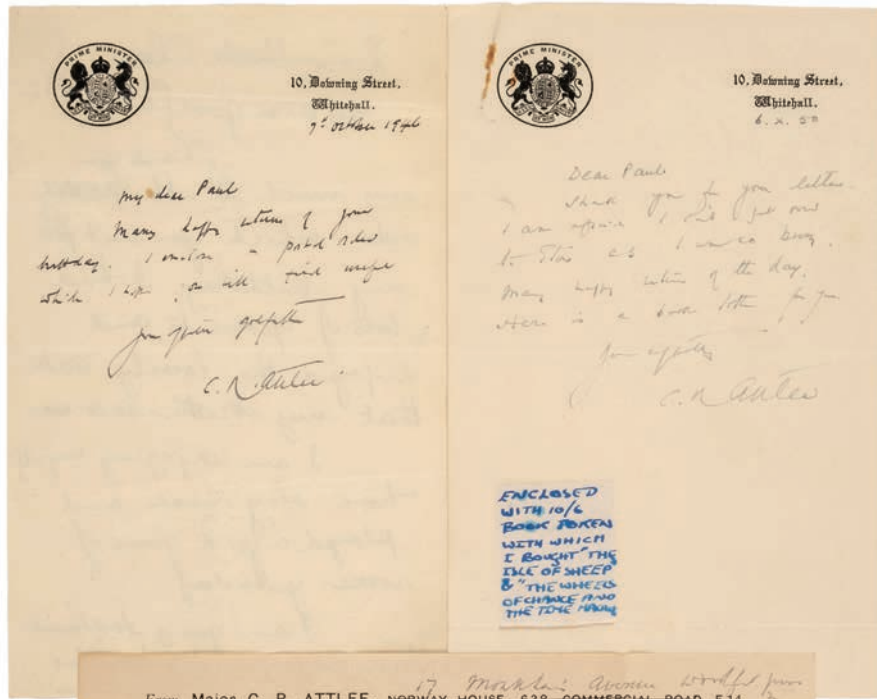 PRIME MINISTER
10, Downing Street,
Whitehall.
9th October 1946
My dear Paul
Many happy returns of your
birthday. I enclose a postal order
which I hope you will find useful
Your affte godfather
C. R. Attlee
PRIME MINISTER
10, Downing Street,
Whitehall.
6. X. 50
Dear Paul
Thank you for your letter.
I am afraid I can't get over
to Stow as I am so busy.
Many happy returns of the day.
Here is a book token for you
Your
C. R. Attlee
ENCLOSED
WITH 10/6
BOOK TOKEN
WITH WHICH
I BOUGHT "THE
ISLE OF SHEEP
& "THE WHEELS
OF CHANCE AND
THE TIME
17 Monkhams Avenue Woodford Green
From Major C. R. ATTLEE, NORWAY HOUSE, 638, COMMERCIAL ROAD, E.14